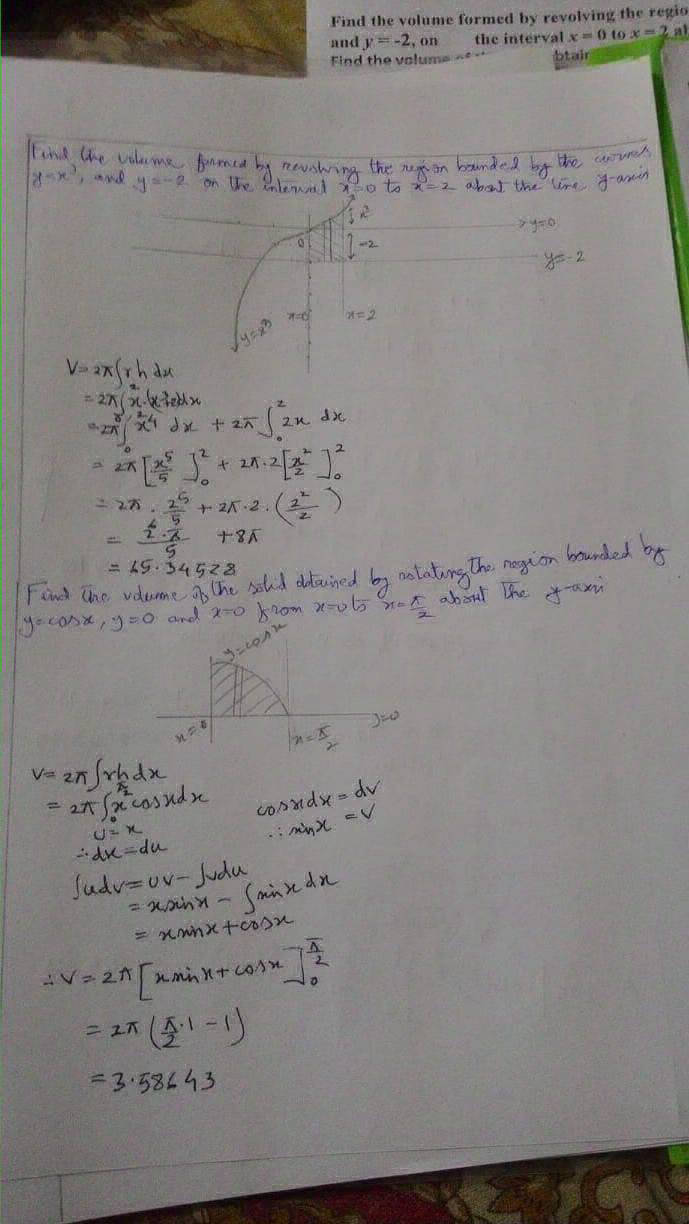 Find the volume formed by revolving the regio
and y = -2, on the interval x = 0 to x = 2 a
Find the volume btain
Find the volume formed by revolving the region bounded by the curves
y=x³, and y=-2 on the interval x=0 to x=2 about the line y-axis
x³
0
y=0
-2
y=-2
x=0
x=2
y=x³
V= 2π∫rh dx
= 2π∫ x·(x³+2)dx
= 2π∫₀² x⁴ dx + 2π ∫₀² 2x dx
= 2π [x⁵/5]₀² + 2π·2 [x²/2]₀²
= 2π · 2⁵/5 + 2π·2·(2²/2)
= 2⁶·π/5 + 8π
= 65.34528
Find the volume of the solid obtained by rotating the region bounded by
y=cosx, y=0 and x=0 from x=0 to x=π/2 about the y-axis
y=cosx
x=0
x=π/2
y=0
V= 2π∫rh dx
= 2π∫₀^π/2 x cosx dx
cosx dx = dv
u=x
∴ sinx = v
∴ dx=du
∫udv=uv-∫vdu
= xsinx - ∫sinx dx
= xsinx+cosx
∴ V = 2π [xsinx+cosx]₀^π/2
= 2π (π/2·1 - 1)
= 3.58643